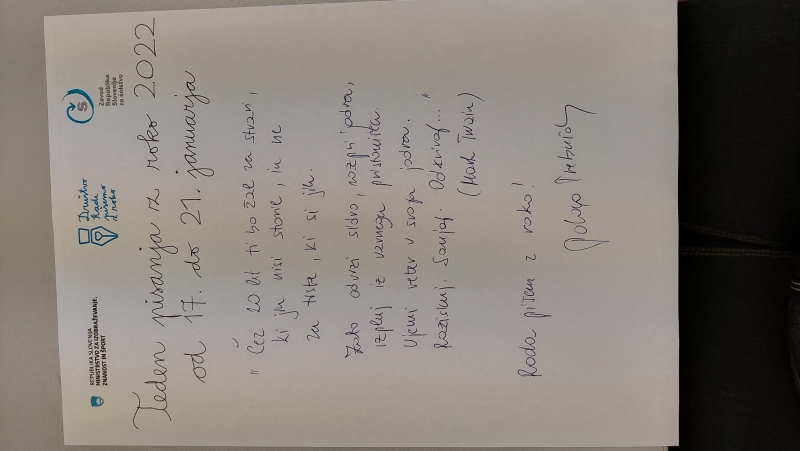 REPUBLIKA SLOVENIJA
MINISTRSTVO ZA IZOBRAŽEVANJE,
ZNANOST IN ŠPORT
Društvo
Radi
pišemo
z roko
Zavod
Republike
Slovenije
za šolstvo
Teden pisanja z roko 2022
od 17. do 21. januarja
"Čez 20 let ti bo žal za stvari,
ki jih nisi storil, in ne
za tiste, ki si jih.
Zato odvrzi sidro, razpri jadra,
izpluj iz varnega pristanišča.
Ujemi veter v svoja jadra.
Raziskuj. Sanjaj. Odkrivaj..."
(Mark Twain)
Rada pišem z roko!
Polona